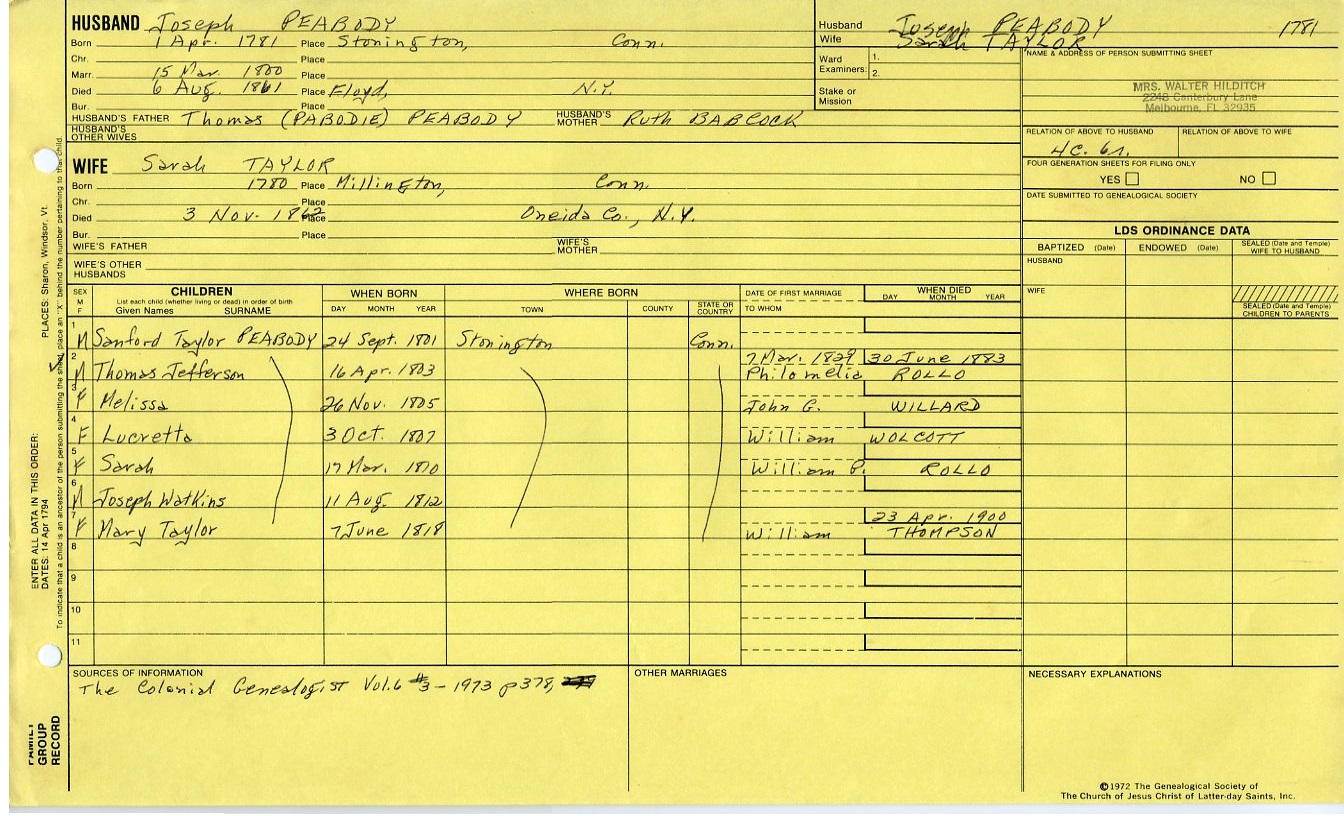 HUSBAND Joseph PEABODY
Born 1 Apr. 1781 Place Stonington, Conn.
Chr. Place
Marr. 15 Mar. 1800 Place
Died 6 Aug. 1861 Place Floyd, N.Y.
Bur. Place
HUSBAND'S FATHER Thomas (PABODIE) PEABODY HUSBAND'S MOTHER Ruth BABCOCK
HUSBAND'S OTHER WIVES
Husband Joseph PEABODY 1781
Wife Sarah TAYLOR
Ward Examiners: 1.
2.
Stake or Mission
NAME & ADDRESS OF PERSON SUBMITTING SHEET
MRS. WALTER HILDITCH
2248 Canterbury Lane
Melbourne, FL 32935
RELATION OF ABOVE TO HUSBAND RELATION OF ABOVE TO WIFE
4C. 6r.
FOUR GENERATION SHEETS FOR FILING ONLY
YES NO
DATE SUBMITTED TO GENEALOGICAL SOCIETY
WIFE Sarah TAYLOR
Born 1780 Place Millington, Conn.
Chr. Place
Died 3 Nov. 1862 Place Oneida Co., N.Y.
Bur. Place
WIFE'S FATHER WIFE'S MOTHER
WIFE'S OTHER HUSBANDS
LDS ORDINANCE DATA
BAPTIZED (Date) ENDOWED (Date) SEALED (Date and Temple) WIFE TO HUSBAND
HUSBAND
WIFE
SEALED (Date and Temple) CHILDREN TO PARENTS
SEX M F CHILDREN WHEN BORN WHERE BORN DATE OF FIRST MARRIAGE WHEN DIED
List each child (whether living or dead) in order of birth
Given Names SURNAME DAY MONTH YEAR TOWN COUNTY STATE OR COUNTRY TO WHOM DAY MONTH YEAR
1 M Sanford Taylor PEABODY 24 Sept. 1801 Stonington Conn.
2 M Thomas Jefferson 16 Apr. 1803 7 Mar. 1829 30 June 1883
Philomelia ROLLO
3 F Melissa 26 Nov. 1805 John G. WILLARD
4 F Lucretta 3 Oct. 1807 William WOLCOTT
5 F Sarah 17 Mar. 1810 William P. ROLLO
6 M Joseph Watkins 11 Aug. 1812
7 F Mary Taylor 7 June 1818 23 Apr. 1900
William THOMPSON
8
9
10
11
SOURCES OF INFORMATION
The Colonial Genealogist Vol. 6 #3 - 1973 p378,
OTHER MARRIAGES
NECESSARY EXPLANATIONS
©1972 The Genealogical Society of
The Church of Jesus Christ of Latter-day Saints, Inc.
ENTER ALL DATA IN THIS ORDER:
DATES: 14 Apr 1794 PLACES: Sharon, Windsor, Vt.
To indicate that a child is an ancestor of the person submitting the sheet, place an "X" behind the number pertaining to that child.
FAMILY GROUP RECORD